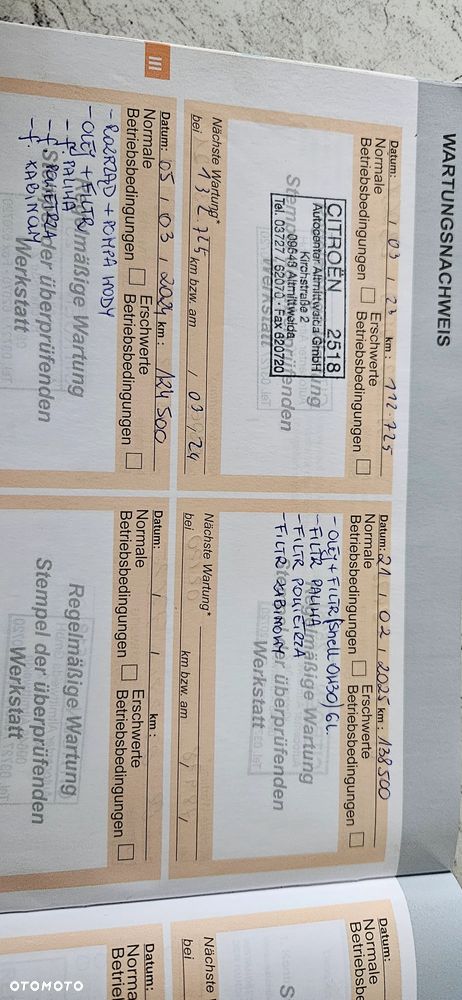 WARTUNGSNACHWEIS
Datum: / 03 / 23 km: 112 725
Normale Betriebsbedingungen
Erschwerte Betriebsbedingungen
CITROËN 2518
Autocenter Altmittweida GmbH
Kirchstraße 2
09648 Altmittweida
Tel. 03727 / 62070 · Fax 620720
Nächste Wartung*
bei 132 725 km bzw. am / 03 / 24
Datum: 21 / 02 / 2025 km: 138500
Normale Betriebsbedingungen
Erschwerte Betriebsbedingungen
- OLEJ + FILTR/Shell 0W30/6L
- FILTR PALIWA
- FILTR POWIETRZA
- FILTR KABINOWY
Regelmäßige Wartung
Stempel der überprüfenden
Werkstatt
Nächste Wartung*
bei km bzw. am /
III
Datum: 05 / 03 / 2024 km: 124500
Normale Betriebsbedingungen
Erschwerte Betriebsbedingungen
- ROZRZĄD + POMPA WODY
- OLEJ + FILTR
- f. PALIWA
- f. POWIETRZA
- f. KABINOWY
Regelmäßige Wartung
Stempel der überprüfenden
Werkstatt
Datum: / / km:
Normale Betriebsbedingungen
Erschwerte Betriebsbedingungen
Regelmäßige Wartung
Stempel der überprüfenden
Werkstatt
Datum:
Nächste
bei
Datum:
OTOMOTO